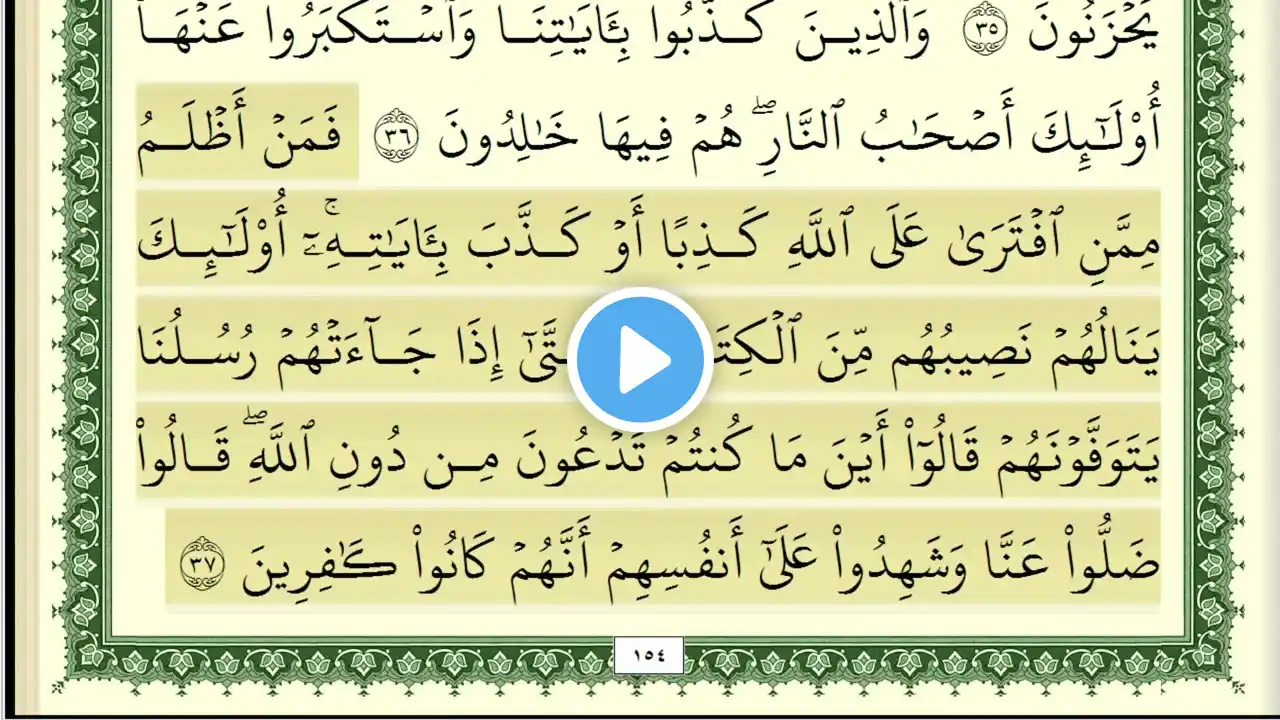 يَحۡزَنُونَ ٣٥ وَٱلَّذِينَ كَذَّبُواْ بِـَٔايَٰتِنَا وَٱسۡتَكۡبَرُواْ عَنۡهَآ
أُوْلَٰٓئِكَ أَصۡحَٰبُ ٱلنَّارِۖ هُمۡ فِيهَا خَٰلِدُونَ ٣٦ فَمَنۡ أَظۡلَمُ
مِمَّنِ ٱفۡتَرَىٰ عَلَى ٱللَّهِ كَذِبًا أَوۡ كَذَّبَ بِـَٔايَٰتِهِۦٓۚ أُوْلَٰٓئِكَ
يَنَالُهُمۡ نَصِيبُهُم مِّنَ إِذَا جَآءَتۡهُمۡ رُسُلُنَا
يَتَوَفَّوۡنَهُمۡ قَالُوٓاْ أَيۡنَ مَا كُنتُمۡ تَدۡعُونَ مِن دُونِ ٱللَّهِۖ قَالُواْ
ضَلُّواْ عَنَّا وَشَهِدُواْ عَلَىٰٓ أَنفُسِهِمۡ أَنَّهُمۡ كَانُواْ كَٰفِرِينَ ٣٧
١٥٤